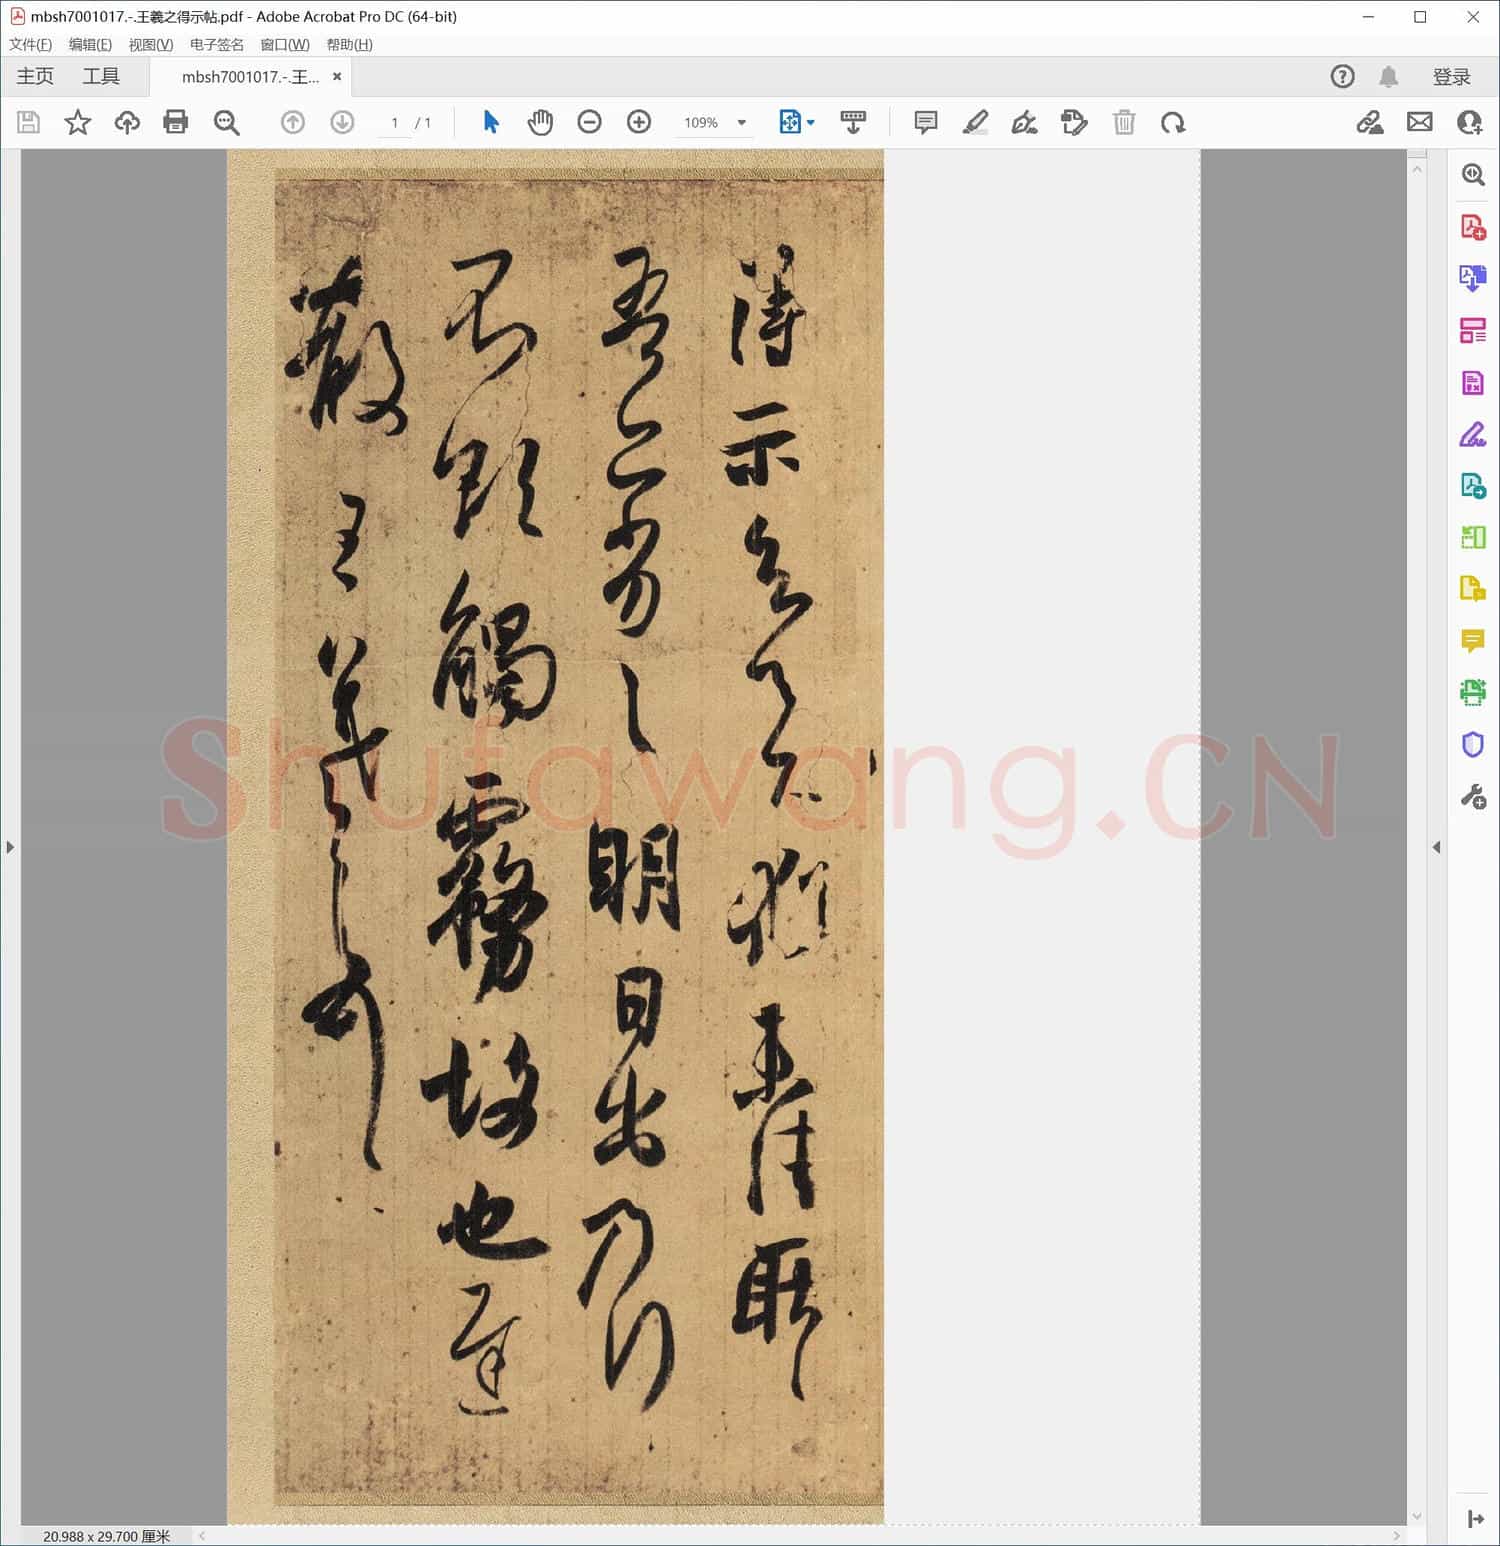 mbsh7001017.-.王羲之得示帖.pdf - Adobe Acrobat Pro DC (64-bit)
文件(F) 编辑(E) 视图(V) 电子签名 窗口(W) 帮助(H)
主页 工具 mbsh7001017.-.王... × 登录
1 / 1 109%
得示知足下猶未佳耿
吾亦劣劣明日出乃行
不欲觸霧故也遲
散王羲之頓首
Shufawang.CN
20.988 x 29.700 厘米